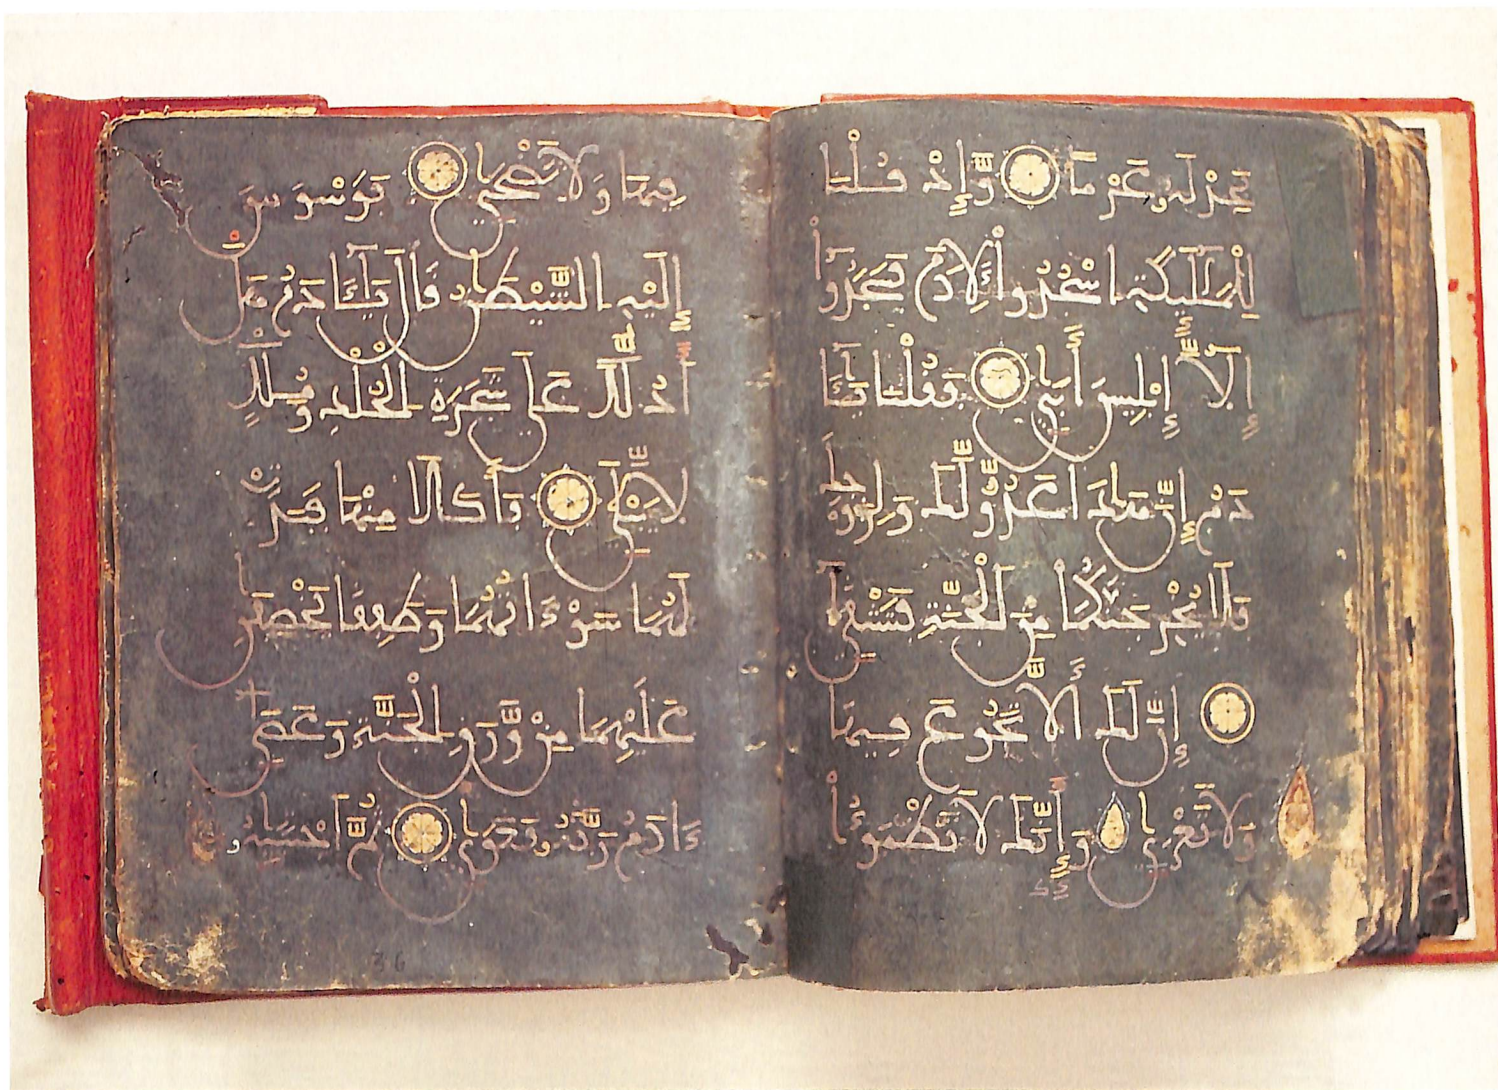 نَجِدْ لَهُ عَزْمًا وَإِذْ قُلْنَا
لِلْمَلَٰٓئِكَةِ اسْجُدُوا لِأَدَمَ فَسَجَدُوٓا
إِلَّآ إِبْلِيسَ أَبَىٰ فَقُلْنَا يَٰٓـَٔا
دَمُ إِنَّ هَٰذَا عَدُوٌّ لَّكَ وَلِزَوْجِكَ
فَلَا يُخْرِجَنَّكُمَا مِنَ الْجَنَّةِ فَتَشْقَىٰٓ
إِنَّ لَكَ أَلَّا تَجُوعَ فِيهَا
وَلَا تَعْرَىٰ وَإِنَّكَ لَا تَظْمَؤُا
فِيهَا وَلَا تَضْحَىٰ فَوَسْوَسَ
إِلَيْهِ الشَّيْطَٰنُ قَالَ يَٰٓـَٔادَمُ هَلَ
اَدُلُّكَ عَلَىٰ شَجَرَةِ الْخُلْدِ وَمُلْكٍ
لَّا يَبْلَىٰ فَأَكَلَا مِنْهَا فَبَدَتْ
لَهُمَا سَوْءَاتُهُمَا وَطَفِقَا يَخْصِفَٰنِ
عَلَيْهِمَا مِنْ وَّرَقِ الْجَنَّةِ وَعَصَىٰٓ
ءَادَمُ رَبَّهُ فَغَوَىٰ ثُمَّ اجْتَبَيٰهُ
36